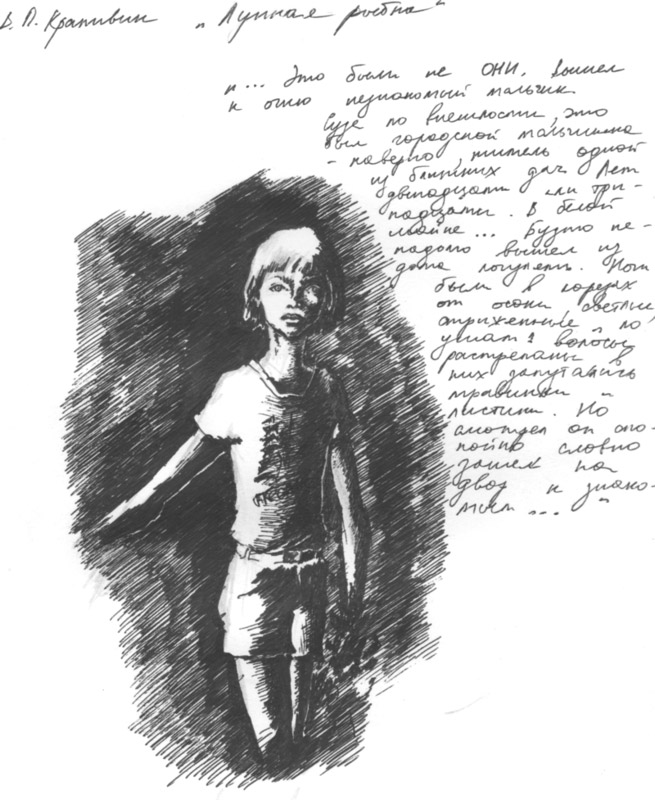 В. П. Крапивин „Лунная рыбка"
"... Это были не ОНИ. Вышел
к огню незнакомый мальчик
Судя по внешности, это
был городской мальчишка
- наверно, житель одной
из ближних дач Лет
двенадцати или три-
надцати. В белой
майке... Будто не-
надолго вышел из
дома погулять. Ноги
были в порезах
от осоки светлые
стриженные „по
ушам" волосы
растрепаны в
них запутались
травинки и
листики. Но
смотрел он спо-
койно словно
зашел на
двор к знако-
мым ... "